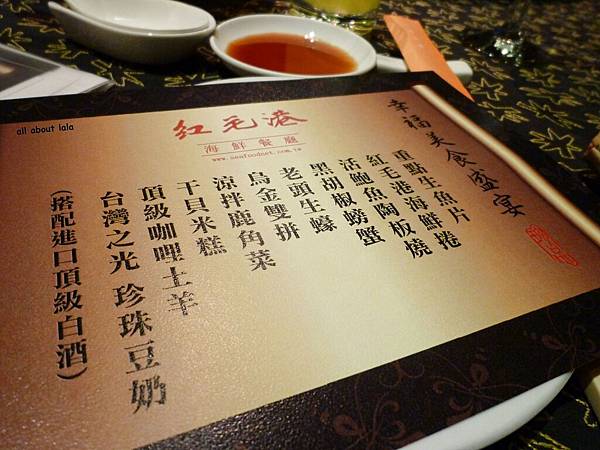 all about lala
紅毛港
海鮮餐廳
www.seafoodnet.com.tw
幸福美食盛宴
重點生魚片
紅毛港海鮮捲
活鮑魚陶板燒
黑胡椒螃蟹
老頭生蠔
烏金雙拼
涼拌鹿角菜
干貝米糕
頂級咖哩土羊
台灣之光 珍珠豆奶
(搭配進口頂級白酒)